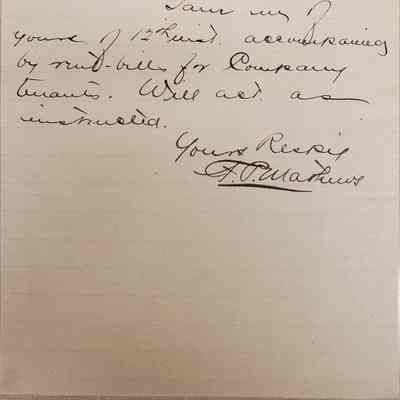 I am in rec of
yours of 12th inst. accompaning
by rent-bills for Company
tenants. Will act as
instructed.
Yours Respy
F. P. Mathews